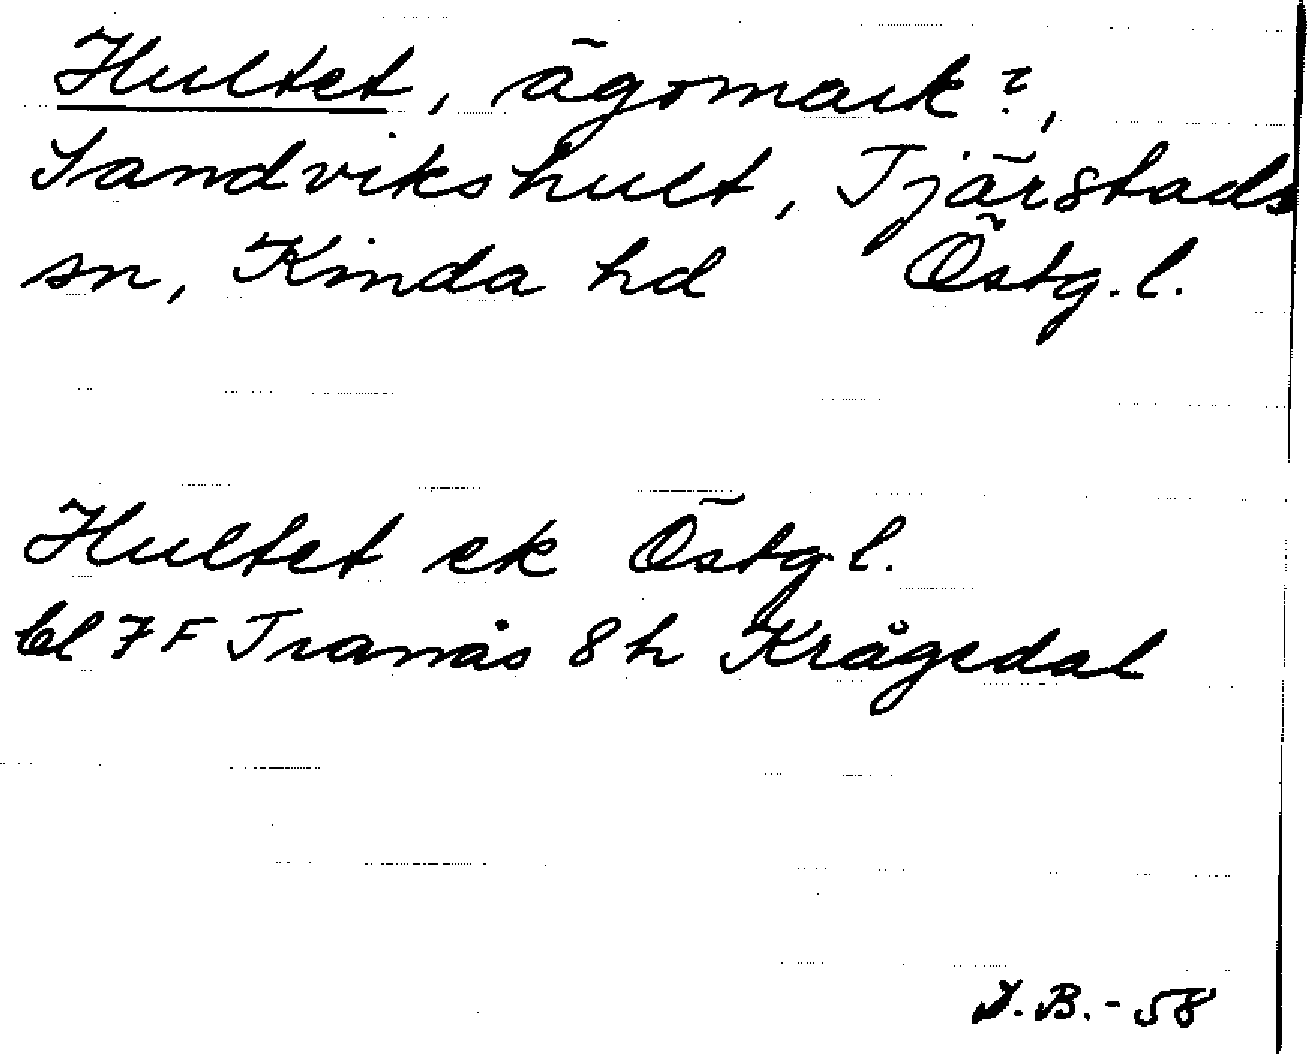 Hultet, ägomark?,
Sandvikshult, Tjärstads
sn, Kinda hd Östg.l.
Hultet ek Östg.l.
bl 7F Tranås 8h Krågedal
J.B.-58